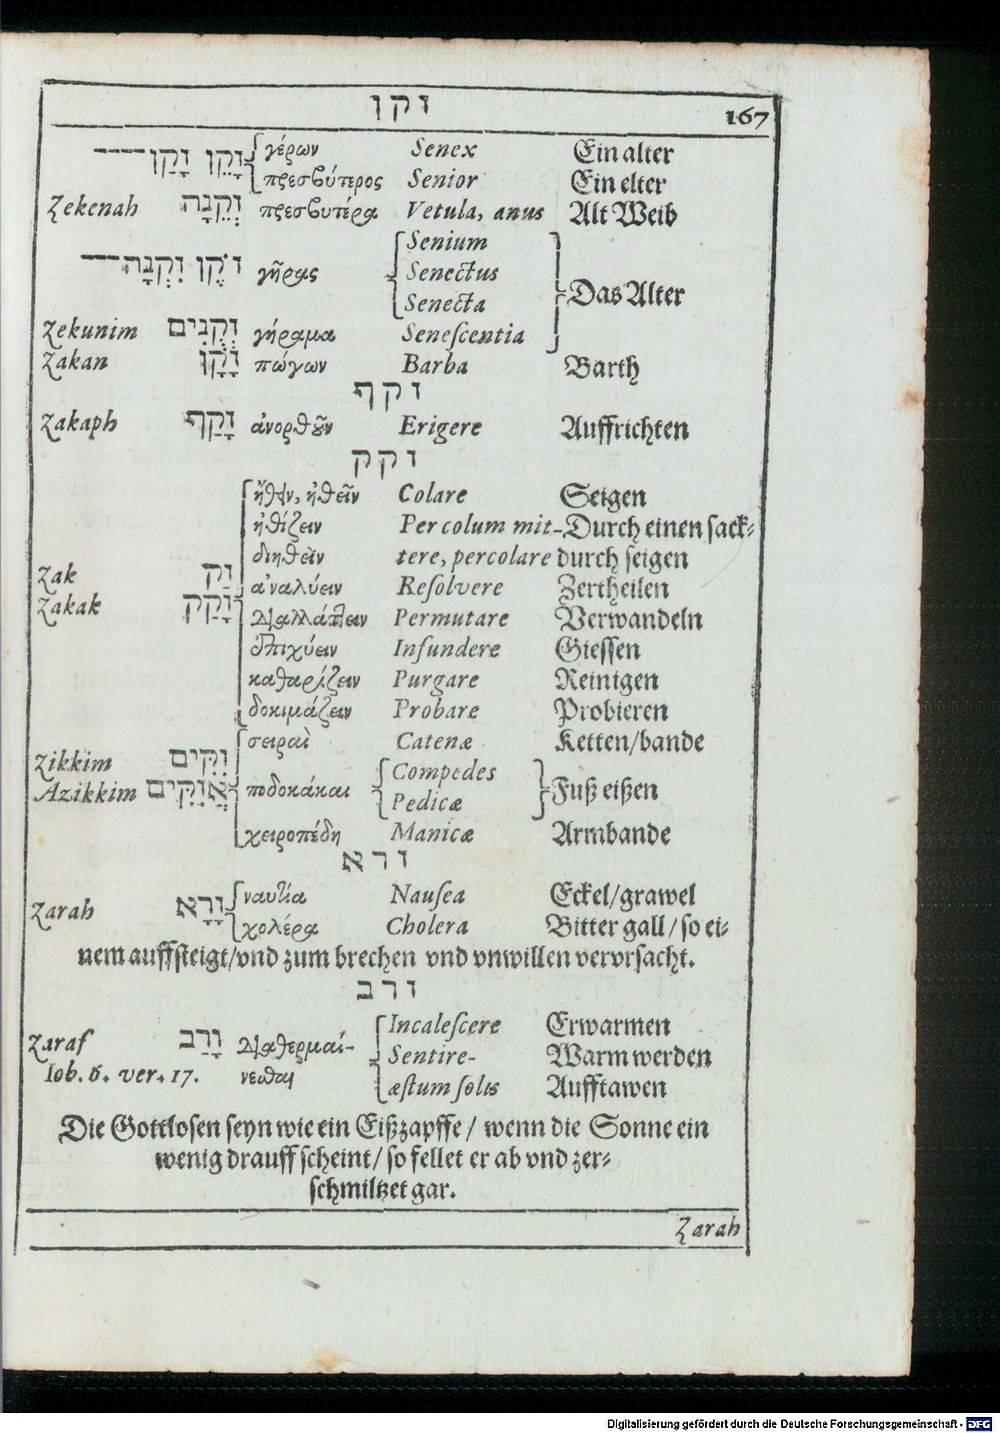 זקן 167
זָקֵן זָקַן γέρων Senex Ein alter
πρεσβύτερος Senior Ein elter
Zekenah זְקֵנָה πρεσβυτέρα Vetula, anus Alt Weib
Senium
זֹקֶן זִקְנָה γῆρας Senectus
Das Alter
Senecta
Zekunim זְקֻנִים γήραμα Senescentia
Zakan זָקָן πώγων Barba Barth
זקף
Zakaph זָקַף ἀνορθοῦν Erigere Auffrichten
זקק
ἤθειν, ἠθεῖν Colare Seigen
ἠθίζειν Per colum mit- Durch einen sack-
διηθεῖν tere, percolare durch seigen
Zak זַק ἀναλύειν Resolvere Zertheilen
Zakak זָקַק διαλλάττειν Permutare Verwandeln
ἐπιχύειν Infundere Giessen
καθαρίζειν Purgare Reinigen
δοκιμάζειν Probare Probieren
σειραὶ Catenæ Ketten/bande
Zikkim זִקִּים Compedes
Azikkim אֲזִקִּים ποδοκάκαι Fuß eißen
Pedicæ
χειροπέδη Manicæ Armbande
זרא
ναυτία Nausea Eckel/grawel
Zarah זָרָא χολέρα Cholera Bitter gall/so ei-
nem auffsteigt/vnd zum brechen vnd vnwillen vervrsacht.
זרב
Incalescere Erwarmen
Zaraf זָרַב διαθερμαί- Sentire- Warm werden
Iob. 6. ver. 17. νεσθαι æstum solis Aufftawen
Die Gottlosen seyn wie ein Eißzapffe/ wenn die Sonne ein
wenig drauff scheint/ so fellet er ab vnd zer-
schmiltzet gar.
Zarah
Digitalisierung gefördert durch die Deutsche Forschungsgemeinschaft - DFG